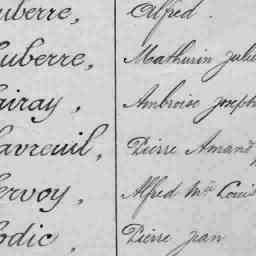 uberre, Alfred.
uberre, Mathurin Julie
airay, Ambroise Joseph
avreuil, Pierre Amand
ervoy, Alfred Mie Louis
odic, Pierre Jean